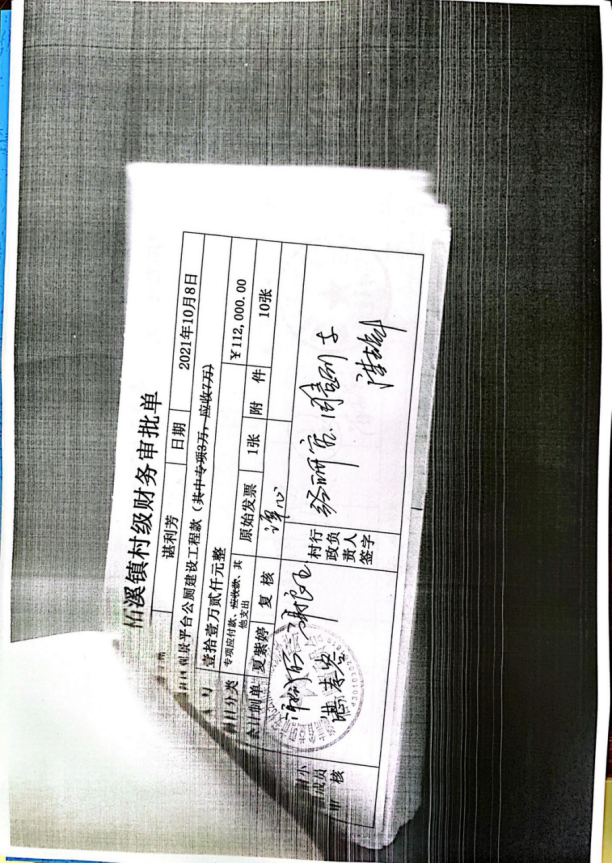 溪镇村级财务审批单
谌利芳 日期 2021年10月8日
观景平台公厕建设工程款（其中专项3万，应收7万）
壹拾壹万贰仟元整 ￥112,000.00
分类 专项应付款、应收款、其他支出 原始发票 1张 附件 10张
制单 夏紫婷 复核
村行政负责人签字 经研究，同意列支
小 成员 核